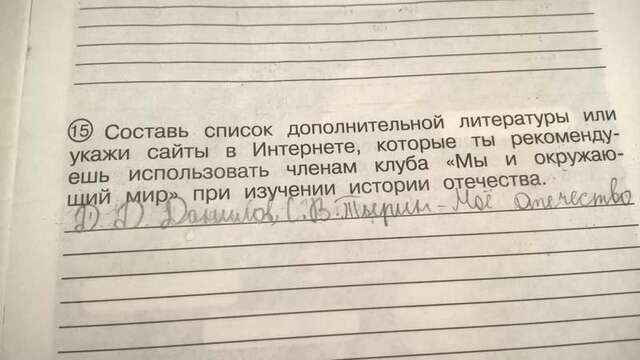 15 Составь список дополнительной литературы или
укажи сайты в Интернете, которые ты рекоменду-
ешь использовать членам клуба «Мы и окружаю-
щий мир» при изучении истории отечества.
Д. Д. Данилов, С. В. Тырин - Моё отечество